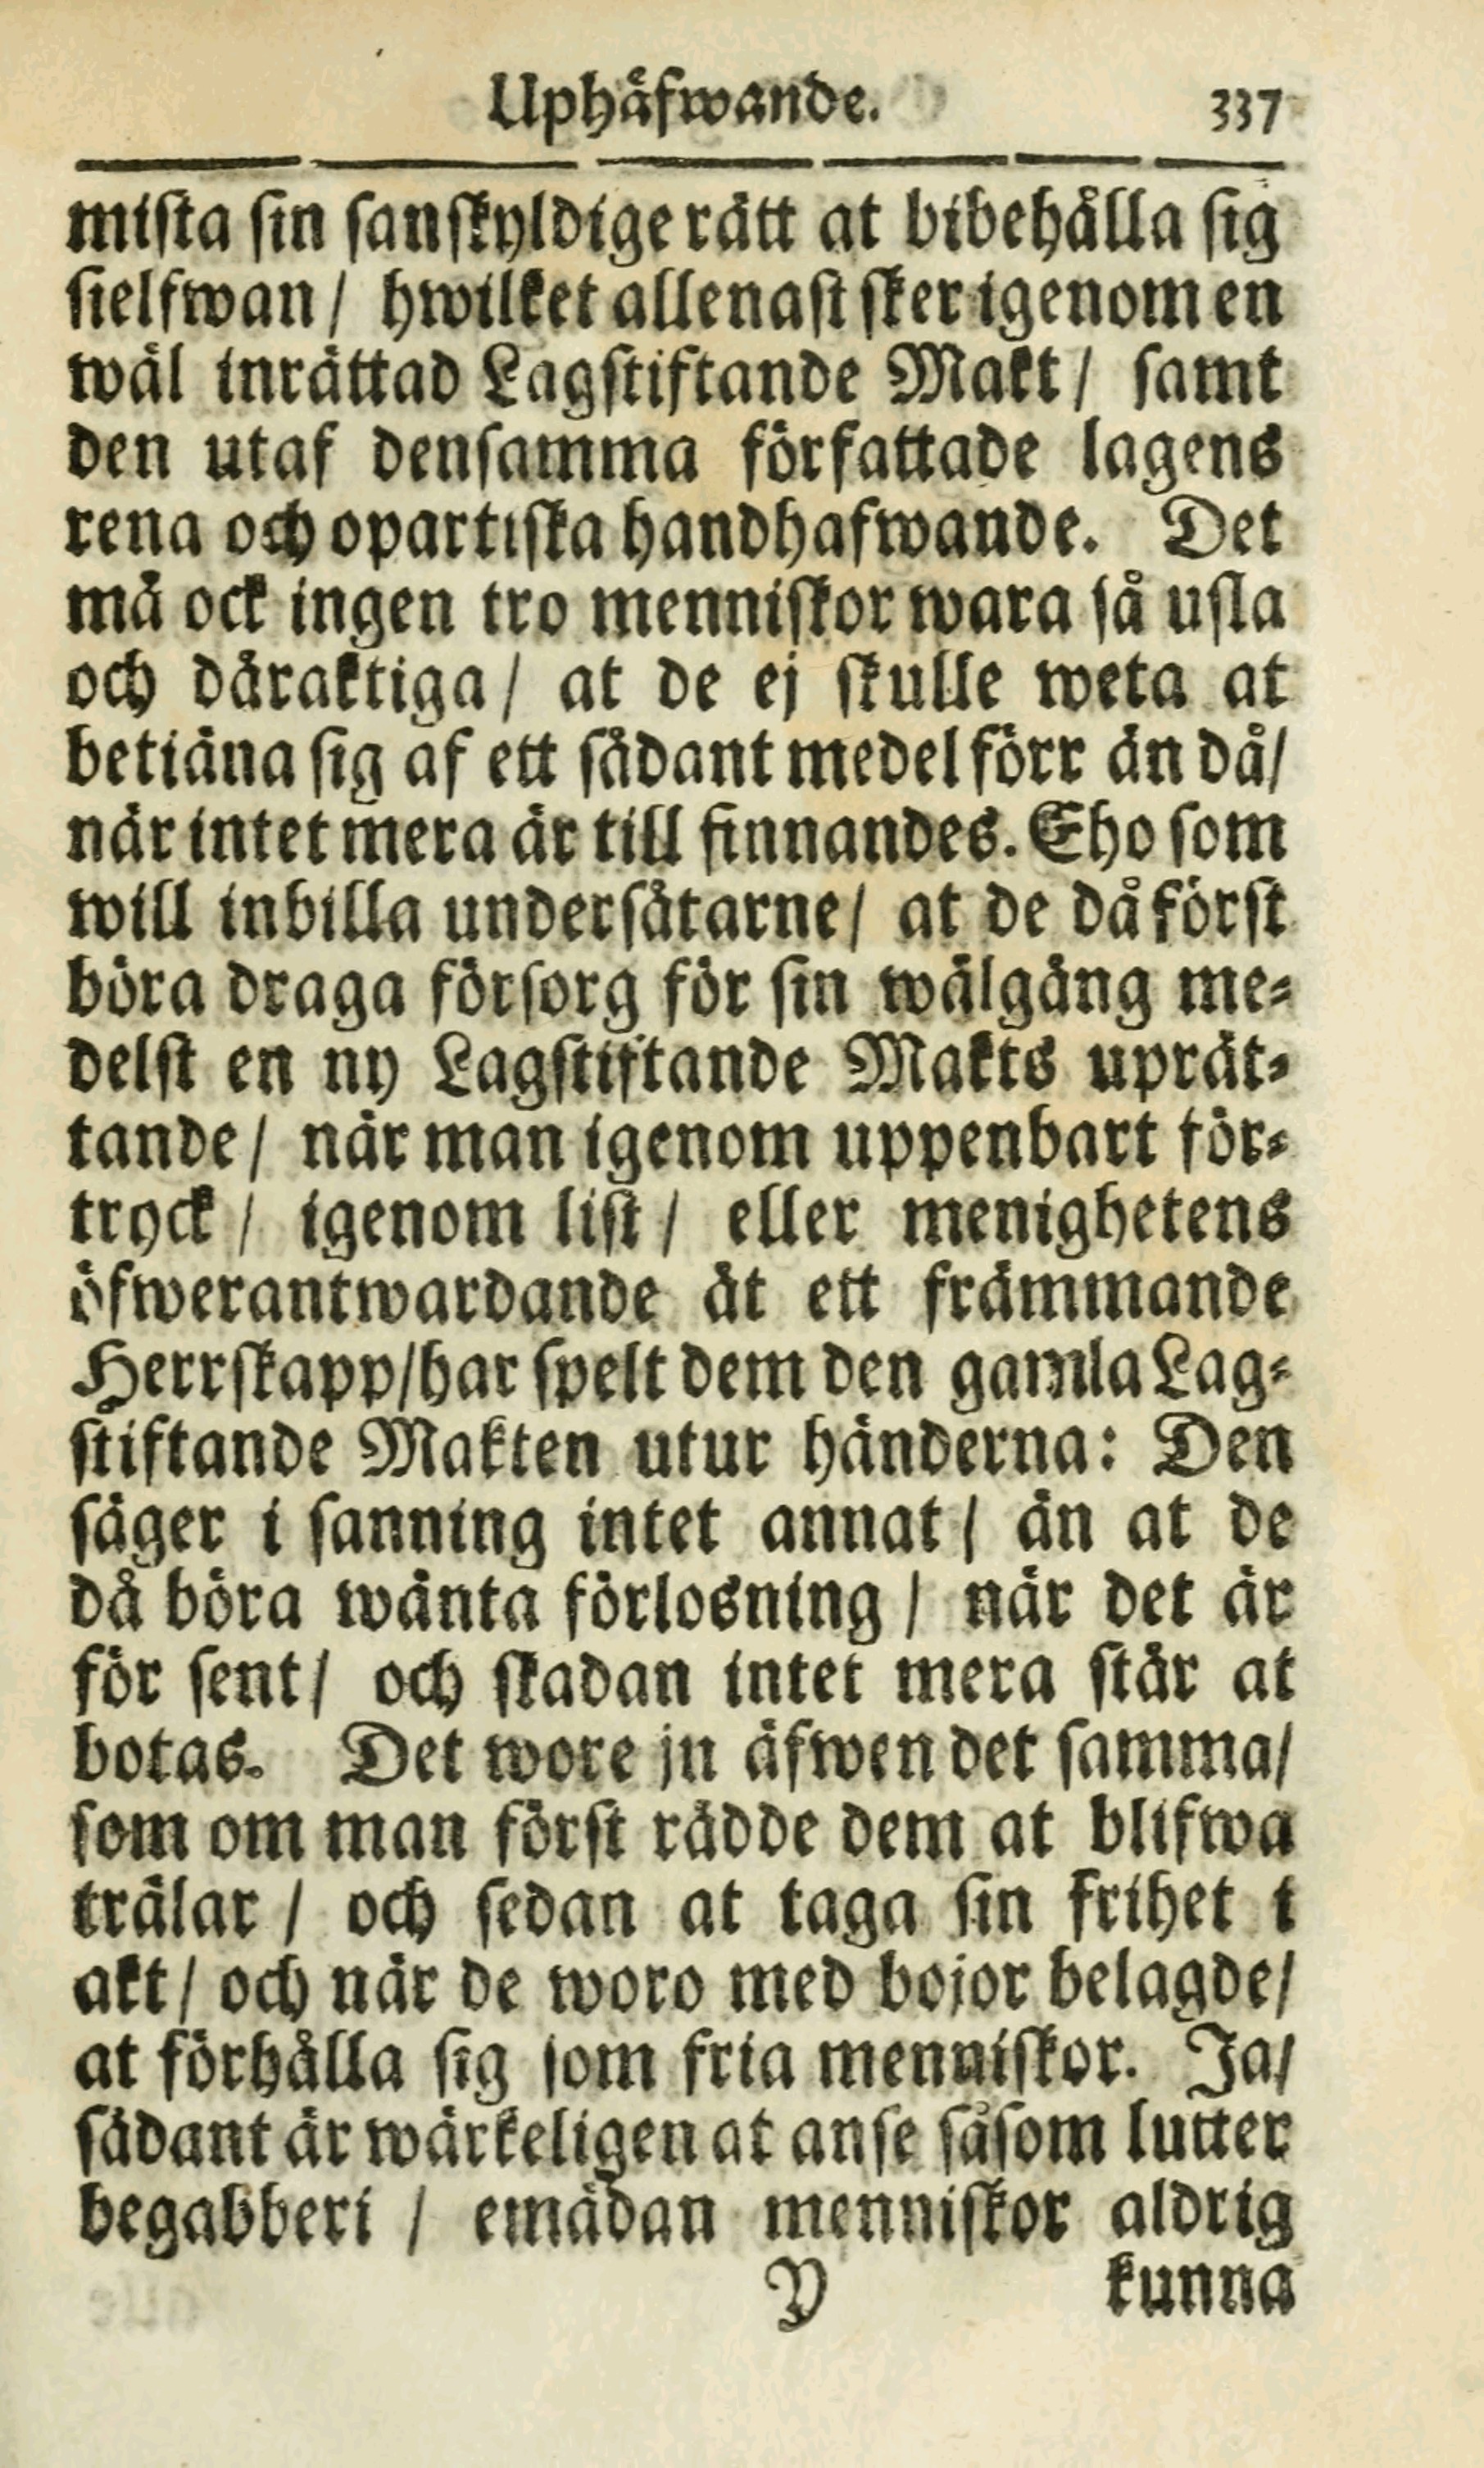 Uphäfwande. 337
mista sin sanskyldige rätt at bibehålla sig
sielfwan/ hwilket allenast sker igenom en
wäl inrättad Lagstiftande Makt/ samt
den utaf densamma författade lagens
rena och opartiska handhafwande. Det
må ock ingen tro menniskor wara så usla
och dåraktiga/ at de ej skulle weta at
betiäna sig af ett sådant medel förr än då/
när intet mera är till finnandes. Eho som
will inbilla undersåtarne/ at de då först
böra draga försorg för sin wälgång me-
delst en ny Lagstiftande Makts uprät-
tande/ när man igenom uppenbart för-
tryck/ igenom list/ eller menighetens
öfwerantwardande åt ett främmande
Herrskapp/har spelt dem den gamla Lag-
stiftande Makten utur händerna: Den
säger i sanning intet annat/ än at de
då böra wänta förlosning/ när det är
för sent/ och skadan intet mera står at
botas. Det wore ju äfwen det samma/
som om man först rådde dem at blifwa
trälar/ och sedan at taga sin frihet i
akt/ och när de woro med bojor belagde/
at förhålla sig som fria menniskor. Ja/
sådant är wärkeligen at anse såsom lutter
begabberi/ emädan menniskor aldrig
Y kunna